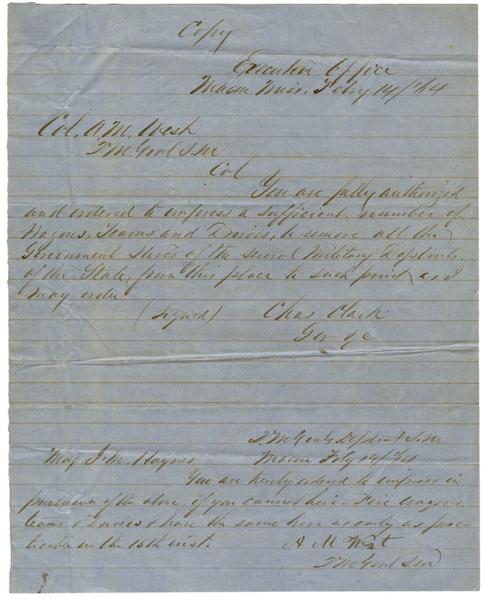 Copy
Executive Office
Macon Miss. Feby 14/64
Col. A. M. West
Q M Genl S. M
Col
You are fully authorized
and ordered to impress a sufficient number of
Wagons, Teams and Drivers, to remove all the
Government Stores of the several Military Departmts.
of the State, from this place to such point as I
may order
(Signed) Chas. Clark
Gov &c
Q. M Genls Departmt S. M
Macon Feby 14/64
Maj J. M. Haynes
You are hereby ordered to impress in
pursuance of the above, if you cannot hire - Five wagons
teams & Drivers & have the same here as early as prac-
ticable on the 15th inst.
A M West
Q M Genl S M